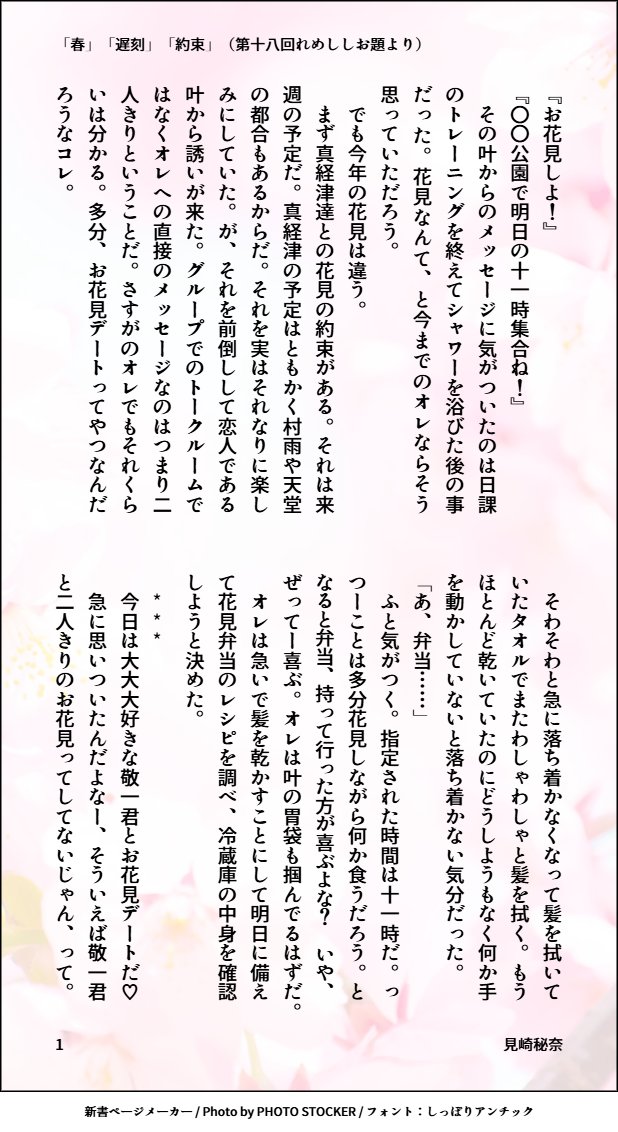 「春」「遅刻」「約束」（第十八回れめししお題より）
『お花見しよ！』
『〇〇公園で明日の十一時集合ね！』
　その叶からのメッセージに気がついたのは日課
のトレーニングを終えてシャワーを浴びた後の事
だった。花見なんて、と今までのオレならそう
思っていただろう。
　でも今年の花見は違う。
　まず真経津達との花見の約束がある。それは来
週の予定だ。真経津の予定はともかく村雨や天堂
の都合もあるからだ。それを実はそれなりに楽し
みにしていた。が、それを前倒しして恋人である
叶から誘いが来た。グループでのトークルームで
はなくオレへの直接のメッセージなのはつまり二
人きりということだ。さすがのオレでもそれくら
いは分かる。多分、お花見デートってやつなんだ
ろうなコレ。
　そわそわと急に落ち着かなくなって髪を拭いて
いたタオルでまたわしゃわしゃと髪を拭く。もう
ほとんど乾いていたのにどうしようもなく何か手
を動かしていないと落ち着かない気分だった。
「あ、弁当……」
　ふと気がつく。指定された時間は十一時だ。っ
つーことは多分花見しながら何か食うだろう。と
なると弁当、持って行った方が喜ぶよな？　いや、
ぜってー喜ぶ。オレは叶の胃袋も掴んでるはずだ。
　オレは急いで髪を乾かすことにして明日に備え
て花見弁当のレシピを調べ、冷蔵庫の中身を確認
しようと決めた。
＊＊＊
　今日は大大大好きな敬一君とお花見デートだ♡
　急に思いついたんだよなー、そういえば敬一君
と二人きりのお花見ってしてないじゃん、って。
見崎秘奈
1
新書ページメーカー / Photo by PHOTO STOCKER / フォント：しっぽりアンチック